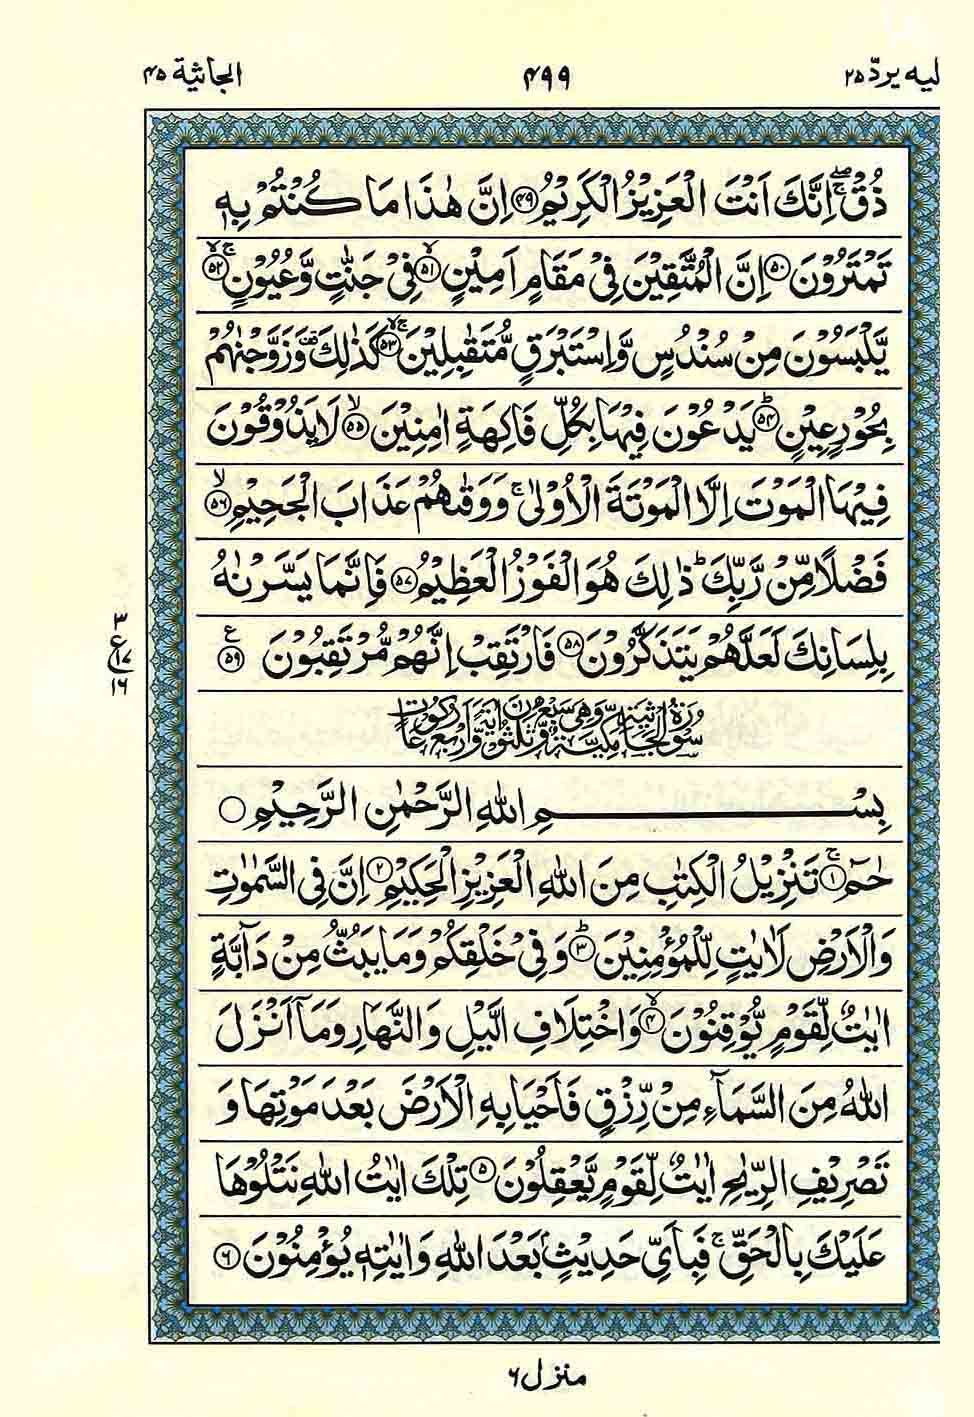 اليه يردّ ٢٥ ٤٩٩ الجاثية ٤٥
ذُقْ ۚۙ اِنَّكَ اَنْتَ الْعَزِيْزُ الْكَرِيْمُ ﴿٤٩﴾ اِنَّ هٰذَا مَا كُنْتُمْ بِهٖ
تَمْتَرُوْنَ ﴿٥٠﴾ اِنَّ الْمُتَّقِيْنَ فِىْ مَقَامٍ اَمِيْنٍ ﴿٥١﴾ۙ فِىْ جَنّٰتٍ وَّعُيُوْنٍ ﴿٥٢﴾ۚۙ
يَّلْبَسُوْنَ مِنْ سُنْدُسٍ وَّاِسْتَبْرَقٍ مُّتَقٰبِلِيْنَ ﴿٥٣﴾ۚۙ كَذٰلِكَ ۗ وَزَوَّجْنٰهُمْ
بِحُوْرٍ عِيْنٍ ﴿٥٤﴾ؕ يَدْعُوْنَ فِيْهَا بِكُلِّ فَاكِهَةٍ اٰمِنِيْنَ ﴿٥٥﴾ۙ لَا يَذُوْقُوْنَ
فِيْهَا الْمَوْتَ اِلَّا الْمَوْتَةَ الْاُوْلٰى ۚ وَوَقٰىهُمْ عَذَابَ الْجَحِيْمِ ﴿٥٦﴾ۙ
فَضْلًا مِّنْ رَّبِّكَ ؕ ذٰلِكَ هُوَ الْفَوْزُ الْعَظِيْمُ ﴿٥٧﴾ فَاِنَّمَا يَسَّرْنٰهُ
بِلِسَانِكَ لَعَلَّهُمْ يَتَذَكَّرُوْنَ ﴿٥٨﴾ فَارْتَقِبْ اِنَّهُمْ مُّرْتَقِبُوْنَ ﴿٥٩﴾ ع
٣
ع ١٧
١٦
سُوْرَةُ الْجَاثِيَةِ مَكِّيَّةٌ وَّهِىَ سَبْعٌ وَّثَلٰثُوْنَ اٰيَةً وَّاَرْبَعُ رُكُوْعَاتٍ
بِسْمِ اللهِ الرَّحْمٰنِ الرَّحِيْمِ
حٰمٓ ﴿١﴾ۚ تَنْزِيْلُ الْكِتٰبِ مِنَ اللهِ الْعَزِيْزِ الْحَكِيْمِ ﴿٢﴾ اِنَّ فِى السَّمٰوٰتِ
وَالْاَرْضِ لَاٰيٰتٍ لِّلْمُؤْمِنِيْنَ ﴿٣﴾ؕ وَفِىْ خَلْقِكُمْ وَمَا يَبُثُّ مِنْ دَآبَّةٍ
اٰيٰتٌ لِّقَوْمٍ يُّوْقِنُوْنَ ﴿٤﴾ۙ وَاخْتِلَافِ الَّيْلِ وَالنَّهَارِ وَمَاۤ اَنْزَلَ
اللهُ مِنَ السَّمَآءِ مِنْ رِّزْقٍ فَاَحْيَا بِهِ الْاَرْضَ بَعْدَ مَوْتِهَا وَ
تَصْرِيْفِ الرِّيٰحِ اٰيٰتٌ لِّقَوْمٍ يَّعْقِلُوْنَ ﴿٥﴾ تِلْكَ اٰيٰتُ اللهِ نَتْلُوْهَا
عَلَيْكَ بِالْحَقِّ ۚ فَبِاَىِّ حَدِيْثٍۭ بَعْدَ اللهِ وَاٰيٰتِهٖ يُؤْمِنُوْنَ ﴿٦﴾
منزل ٦